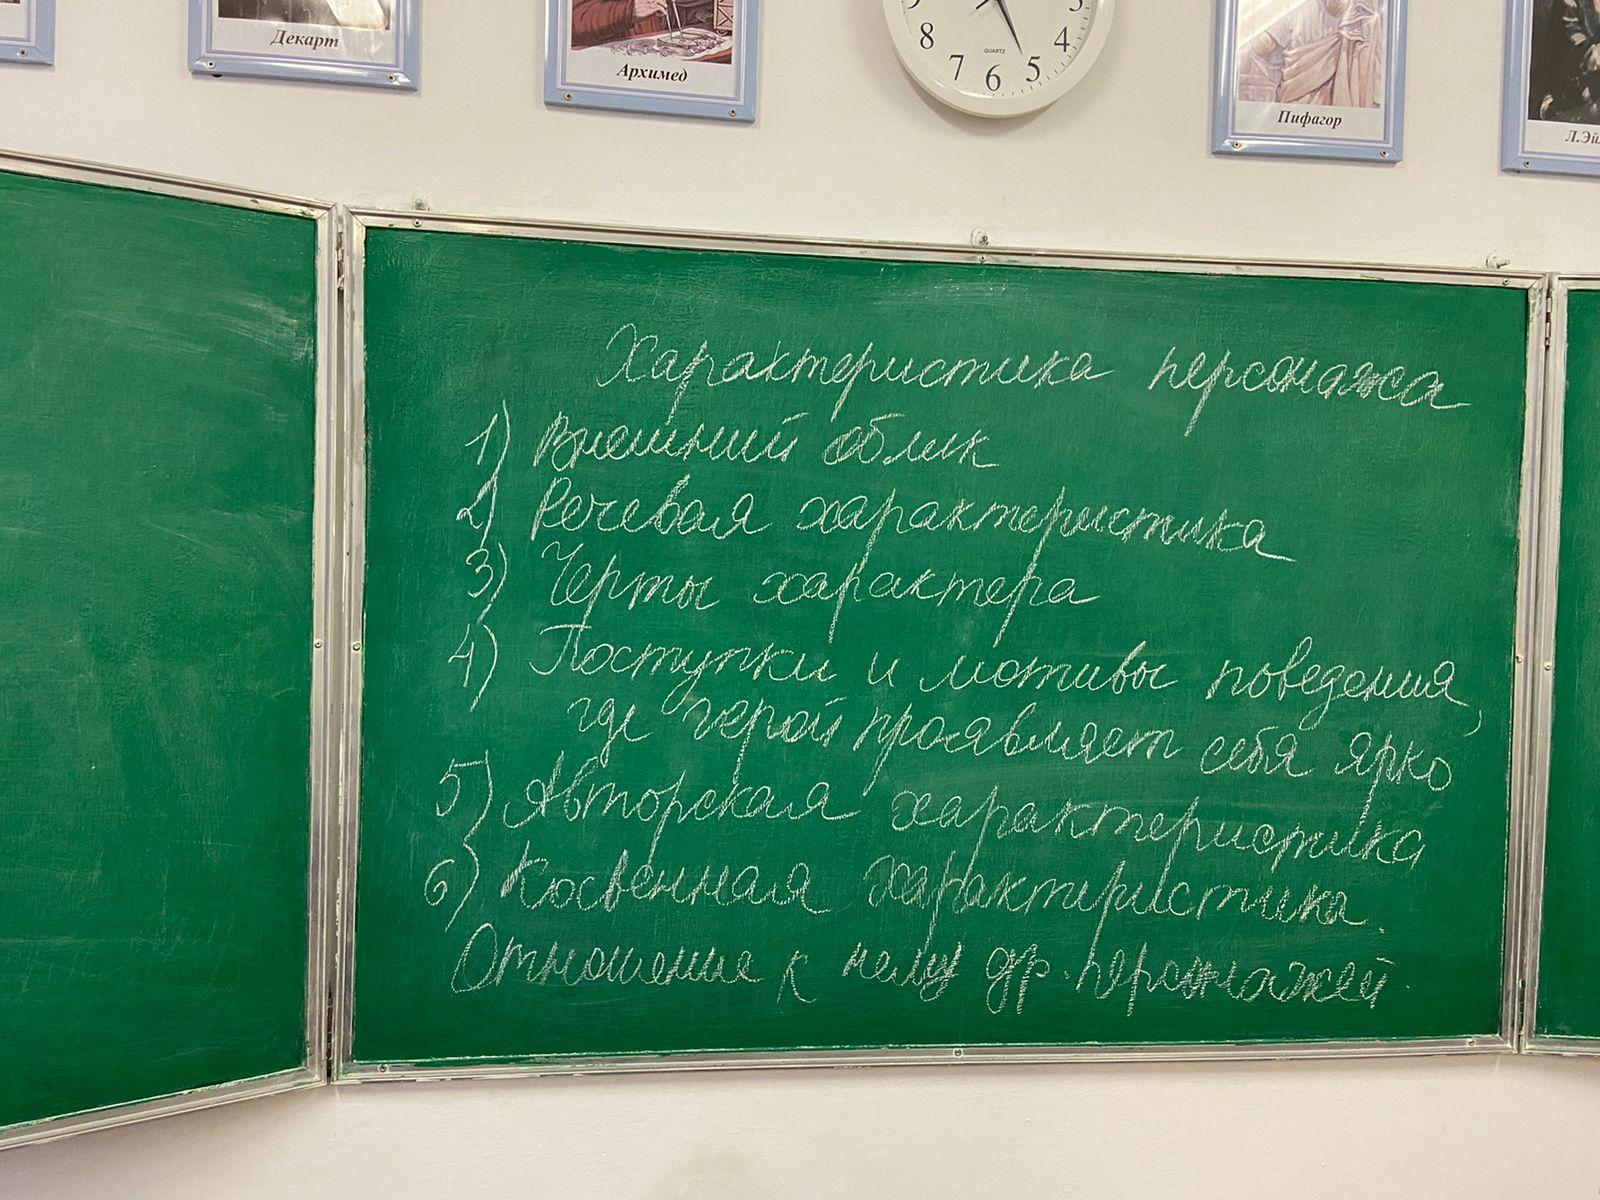 Декарт
Архимед
8 7 6 5 4 3
QUARTZ
Пифагор
Л.Эй
Характеристика персонажа
1) Внешний облик
2) Речевая характеристика
3) Черты характера
4) Поступки и мотивы поведения,
где герой проявляет себя ярко
5) Авторская характеристика
6) Косвенная характеристика.
Отношение к нему др. персонажей.